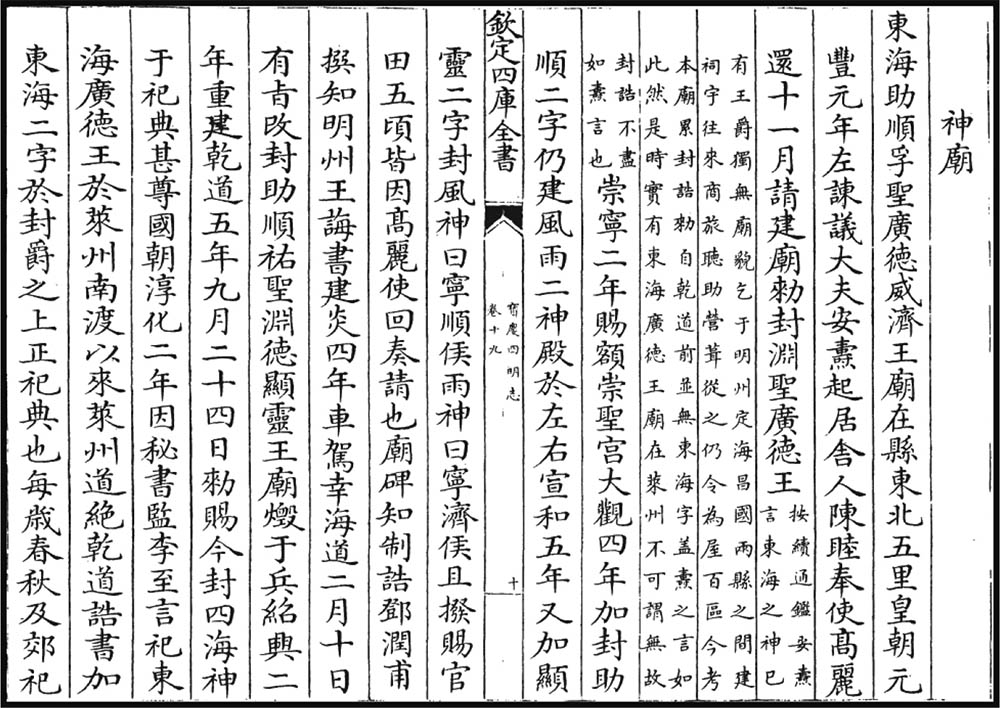 神廟
東海助順孚聖廣德威濟王廟在縣東北五里皇朝元
豐元年左諫議大夫安燾起居舍人陳睦奉使髙麗
還十一月請建廟勑封淵聖廣德王
按續通鑑安燾
言東海之神已
有王爵獨無廟貌乞于明州定海昌國兩縣之間建
祠宇往來商旅聽助營葺從之仍令為屋百區今考
本廟累封誥勑自乾道前並無東海字盖燾之言如
此然是時實有東海廣德王廟在萊州不可謂無故
封誥不盡
如燾言也
崇寧二年賜額崇聖宫大觀四年加封助
順二字仍建風雨二神殿於左右宣和五年又加顯
欽定四庫全書
寶慶四明志
卷十九
十
靈二字封風神曰寧順侯雨神曰寧濟侯且撥賜官
田五頃皆因髙麗使回奏請也廟碑知制誥鄧潤甫
撰知明州王誨書建炎四年車駕幸海道二月十日
有㫖改封助順祐聖淵德顯靈王廟燬于兵紹興二
年重建乾道五年九月二十四日勑賜今封四海神
于祀典甚尊國朝淳化二年因秘書監李至言祀東
海廣德王於萊州南渡以來萊州道絶乾道誥書加
東海二字於封爵之上正祀典也每歲春秋及郊祀